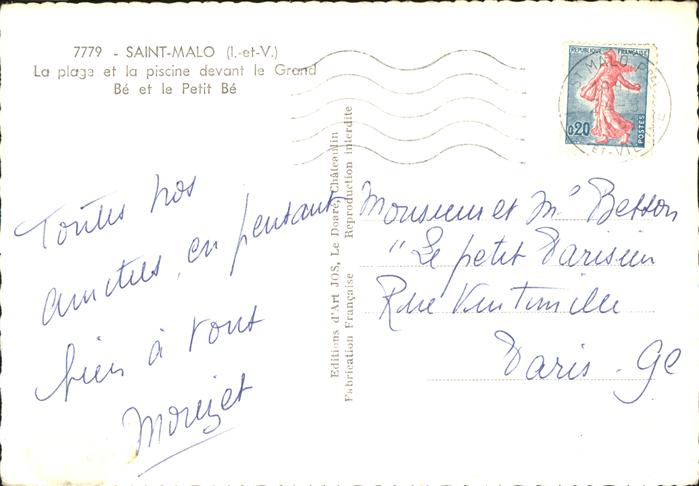 7779 - SAINT-MALO (I.-et-V.)
La plage et la piscine devant le Grand
Bé et le Petit Bé
Toutes nos
amitiés, en pensant
bien à vous
Editions d'Art JOS, Le Doaré, Châteaulin
Fabrication Française Reproduction interdite
REPUBLIQUE FRANÇAISE
0,20
POSTES
ST MALO PPAL
ET-VILAINE
Monsieur et Me Betton
"Le petit Parisien
Rue Vintimille
Paris. 9e